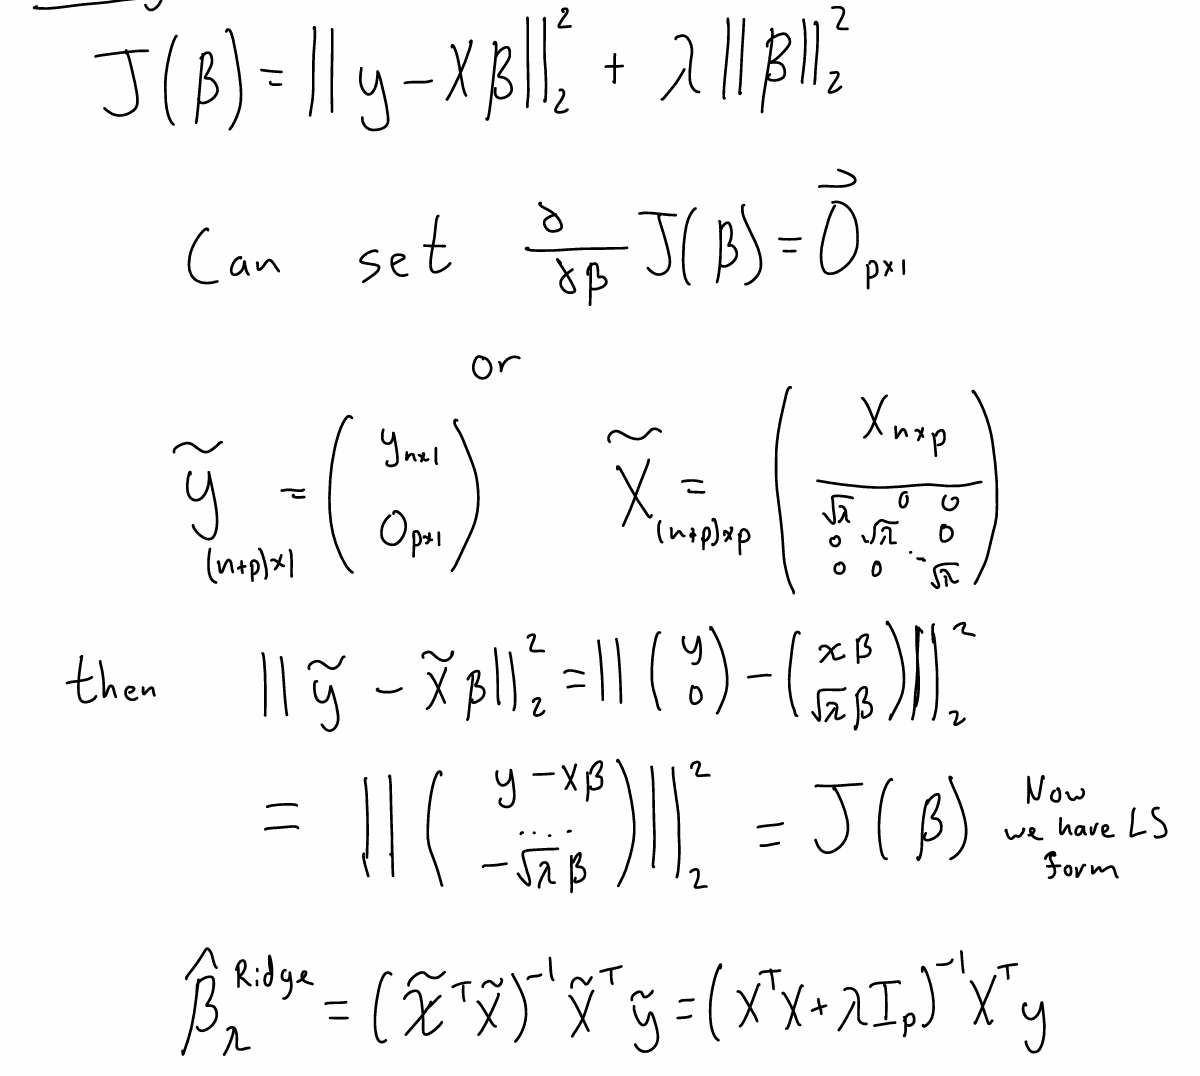 J(β) = ||y - Xβ||₂² + λ||β||₂²
Can set ∂/∂β J(β) = 0⃗ₚₓ₁
or
ỹ₍ₙ₊ₚ₎ₓ₁ = (yₙₓ₁ 0ₚₓ₁) X̃₍ₙ₊ₚ₎ₓₚ = (Xₙₓₚ √λ 0 0 0 √λ 0 0 0 ⋱ √λ)
then ||ỹ - X̃β||₂² = ||(y 0) - (xβ √λβ)||₂²
= ||(y - xβ .... -√λβ)||₂² = J(β) Now
we have LS
form
β̂_λ^Ridge = (X̃ᵀX̃)⁻¹X̃ᵀỹ = (XᵀX + λIₚ)⁻¹Xᵀy